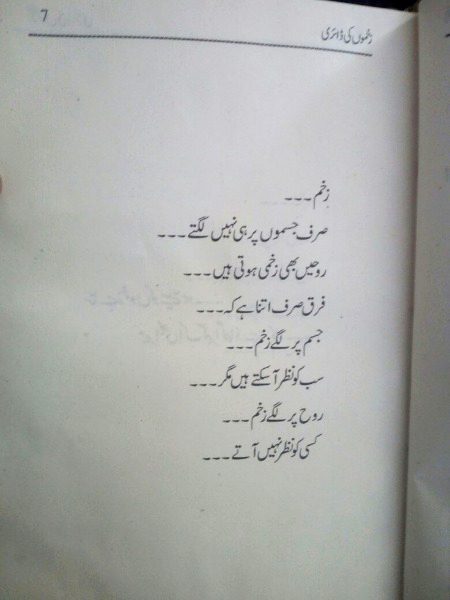 زخموں کی ڈائری
7
زخم ---
صرف جسموں پر ہی نہیں لگتے ---
روحیں بھی زخمی ہوتی ہیں ---
فرق صرف اتنا ہے کہ ---
جسم پر لگے زخم ---
سب کو نظر آ سکتے ہیں مگر ---
روح پر لگے زخم ---
کسی کو نظر نہیں آتے ---